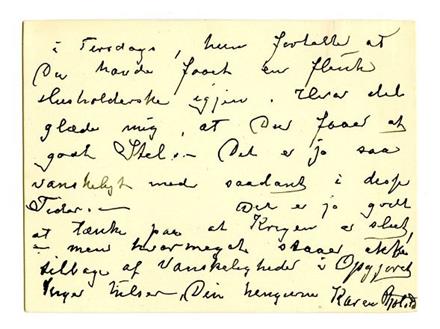 i Tirsdags, hun fortalte at
Du havde faaet en flink
Husholderske igjen. Hvor det
glæde mig, at Du faaer et
godt Stel. - Det er jo saa
vanskeligt med saadant i disse
Tider. - Det er jo godt
at tænke paa at Krigen er slut,
- men hvormeget staaer ikke
tilbage af Vanskeligheder i Opgjøret
Inger hilser, Din hengivne Karen